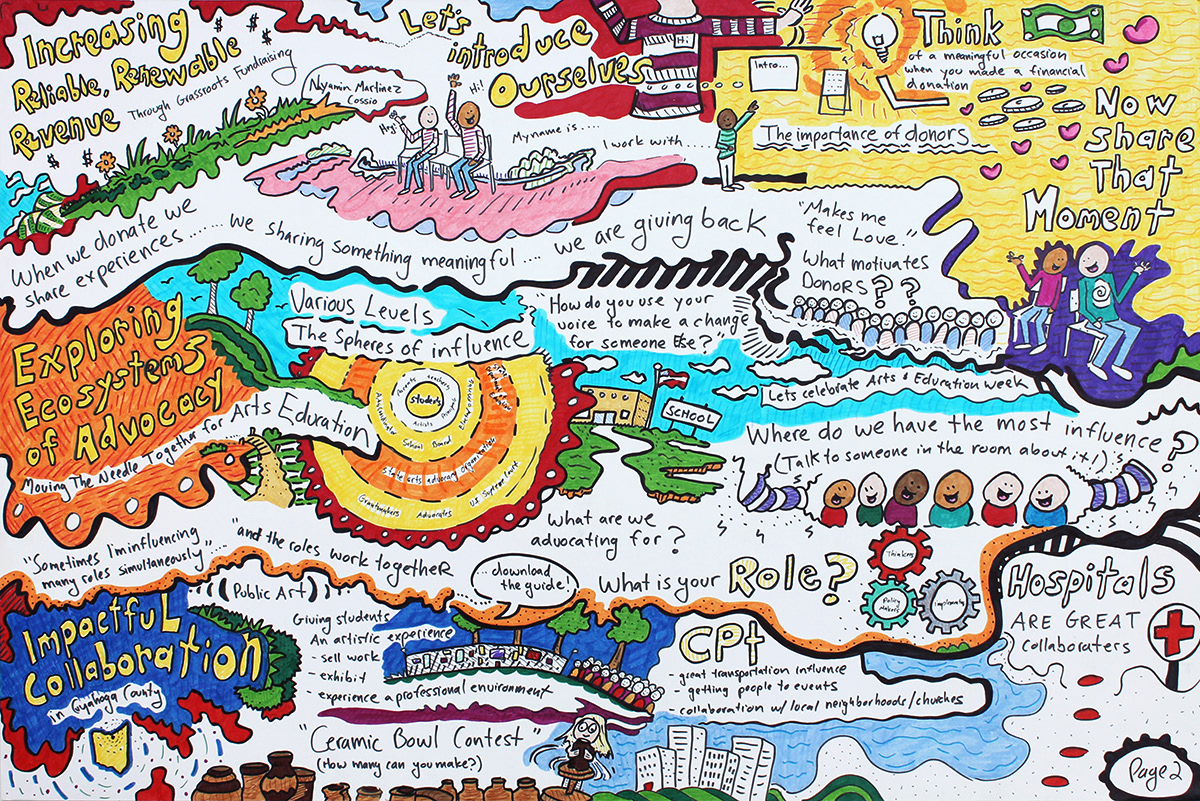 Increasing
Reliable, Renewable
Revenue
Through Grassroots Fundraising
$ $ $ $
$ $ $
Nyamin Martinez
Cossio
Let's
introduce
Ourselves
Hey!
Hi!
Hi!
My name is ....
I work with ....
Intro...
Think
of a meaningful occasion
when you made a financial
donation
The importance of donors
Now
share
That
Moment
When we donate we
share experiences ......
we sharing something meaningful ....
we are giving back
"Makes me
feel Love."
What motivates
Donors??
Exploring
Ecosystems
of Advocacy
Moving The Needle Together for
Arts Education
Various Levels
The Spheres of influence
Students
Parents
teachers
Artists
Principals
School Board
State arts advocacy organization
Grantmakers
Advocates
U.S Supreme Court
How do you use your
voice to make a change
for someone else?
SCHOOL
Lets celebrate Arts & Education week
Where do we have the most influence?
(Talk to someone in the room about it!)
What are we
advocating for?
"Sometimes I'm influencing
many roles simultaneously"...
"and the roles work together
... download
the guide!
What is your Role?
Thinkers
Policy
makers
Implementers
Hospitals
ARE GREAT
collaboraters
Impactful
Collaboration
in Cuyahoga County
((Public Art))
Giving students
An artistic experience
- sell work
- exhibit
- experience a professional environment
CPt
- great transportation influence
- getting people to events
- collaboration w/ local neighborhoods/churches
"Ceramic Bowl Contest"
(How many can you make?)
Page 2